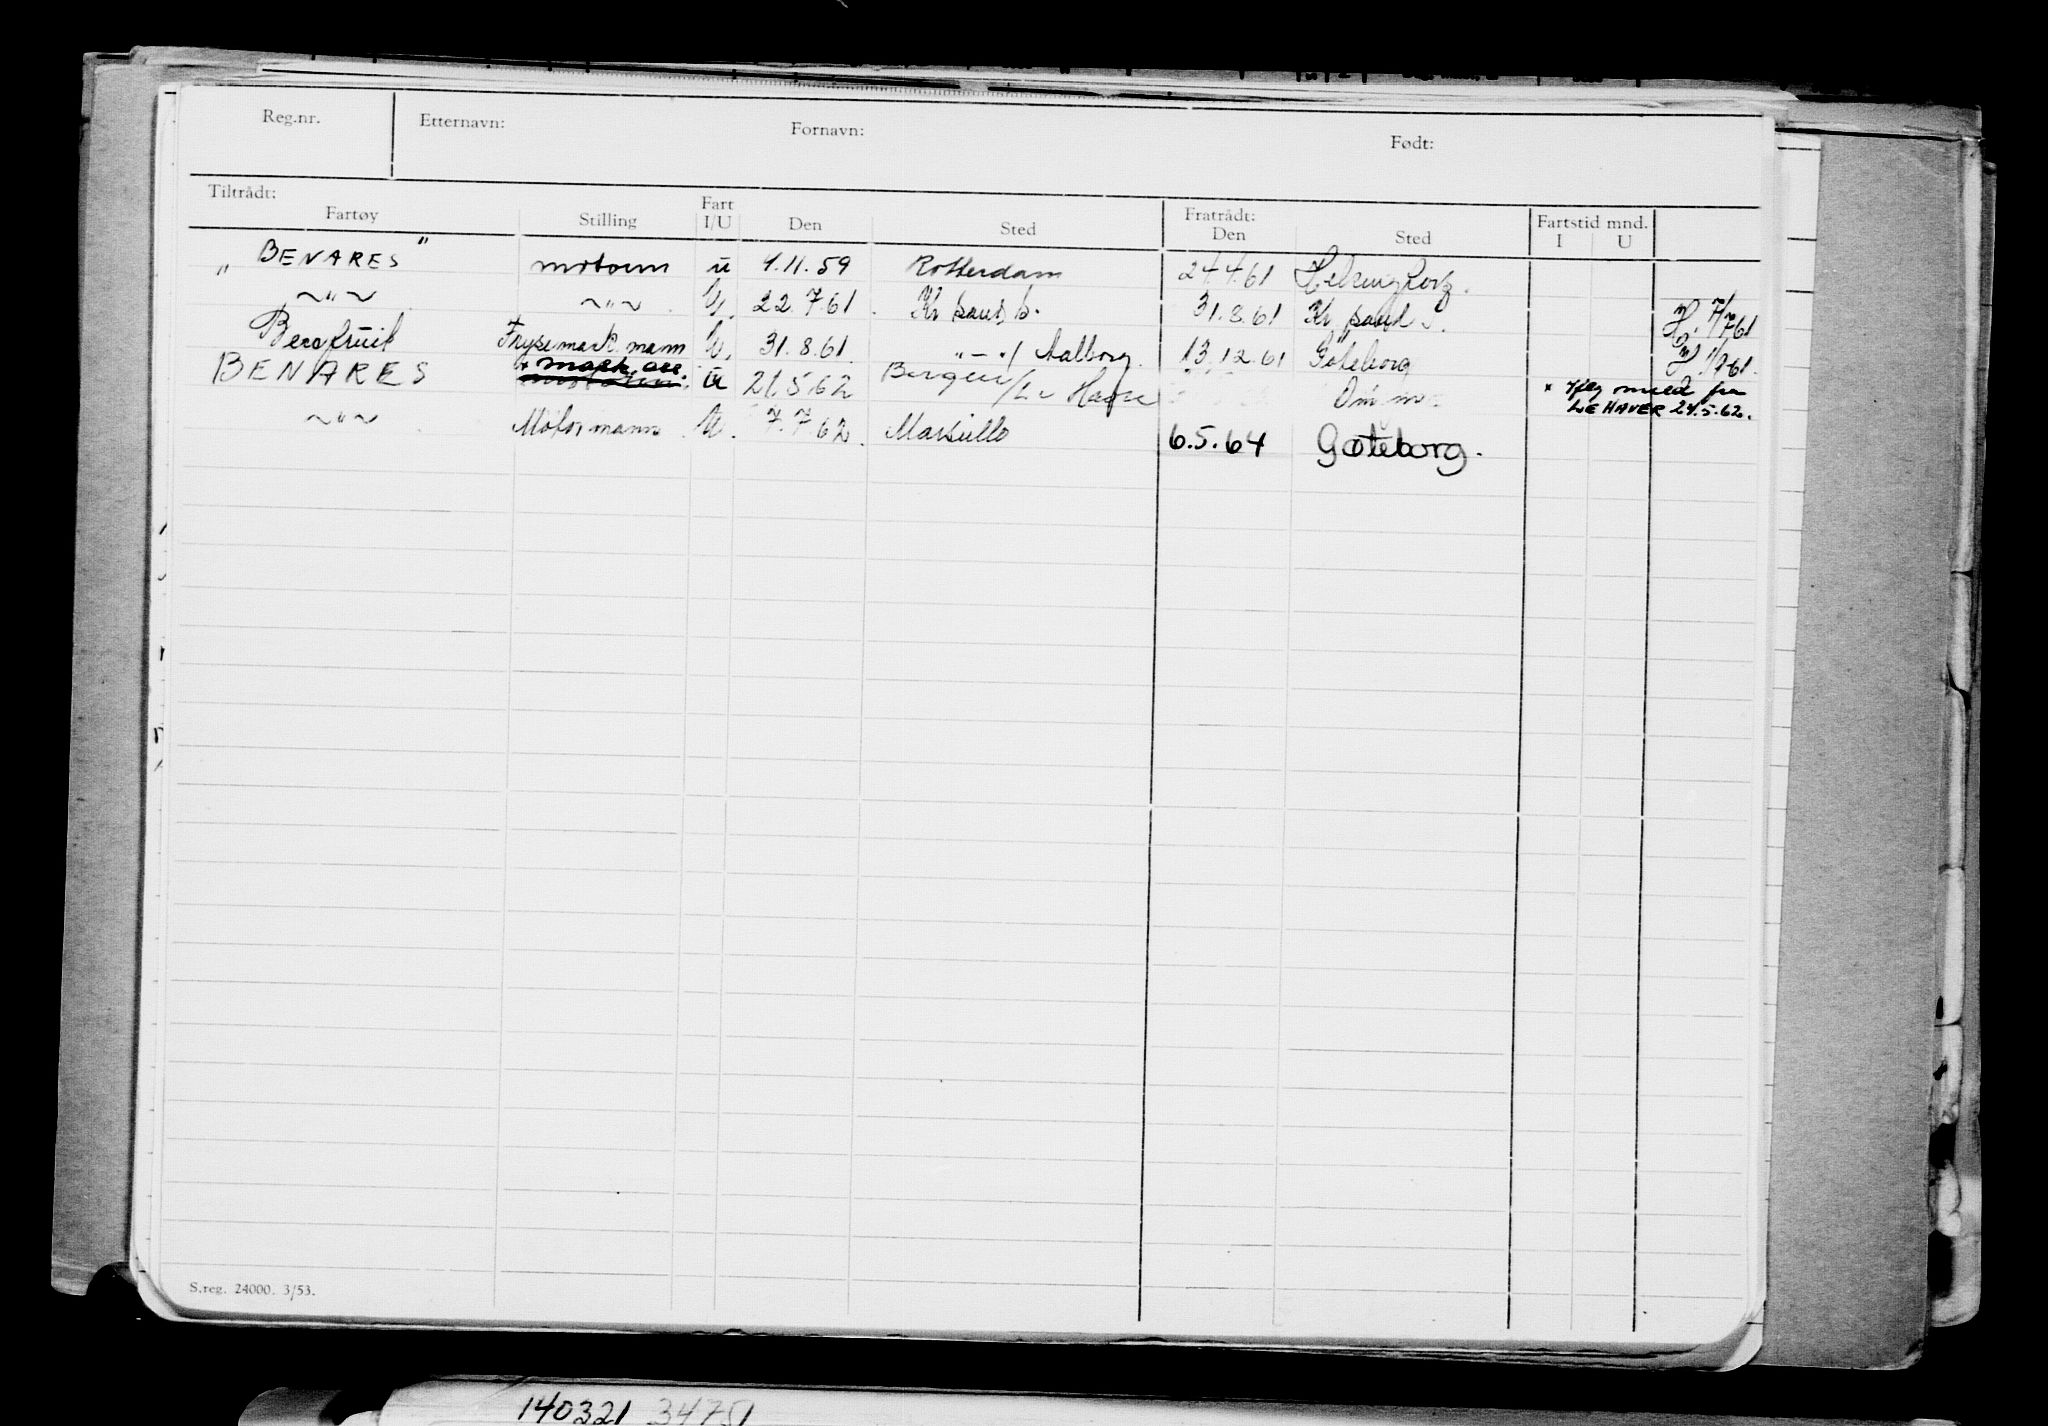 Reg.nr. Etternavn: Fornavn: Født:
Tiltrådt: Fratrådt:
Fartøy Stilling Fart I/U Den Sted Den Sted Fartstid mnd. I U
"BENARES" motorm u 1.11.59 Rotterdam 24.4.61 Helsingborg.
~"~ ~"~ U. 22.7.61. Kr sand s. 31.8.61 Kr sand s. 7/7 61
Bergfruit Frysemask. mann U. 31.8.61. "-"/Aalborg. 13.12.61 Göteborg 1/9 61.
BENARES mask. ass. U 21.5.62 Bergen/Le Havre Om m. * fra
LE HAVER 24.5.62.
~"~ Motormann U. 7.7.62. Marseille 6.5.64 Gøteborg.
S.reg. 24000. 3/53.
140321 34751